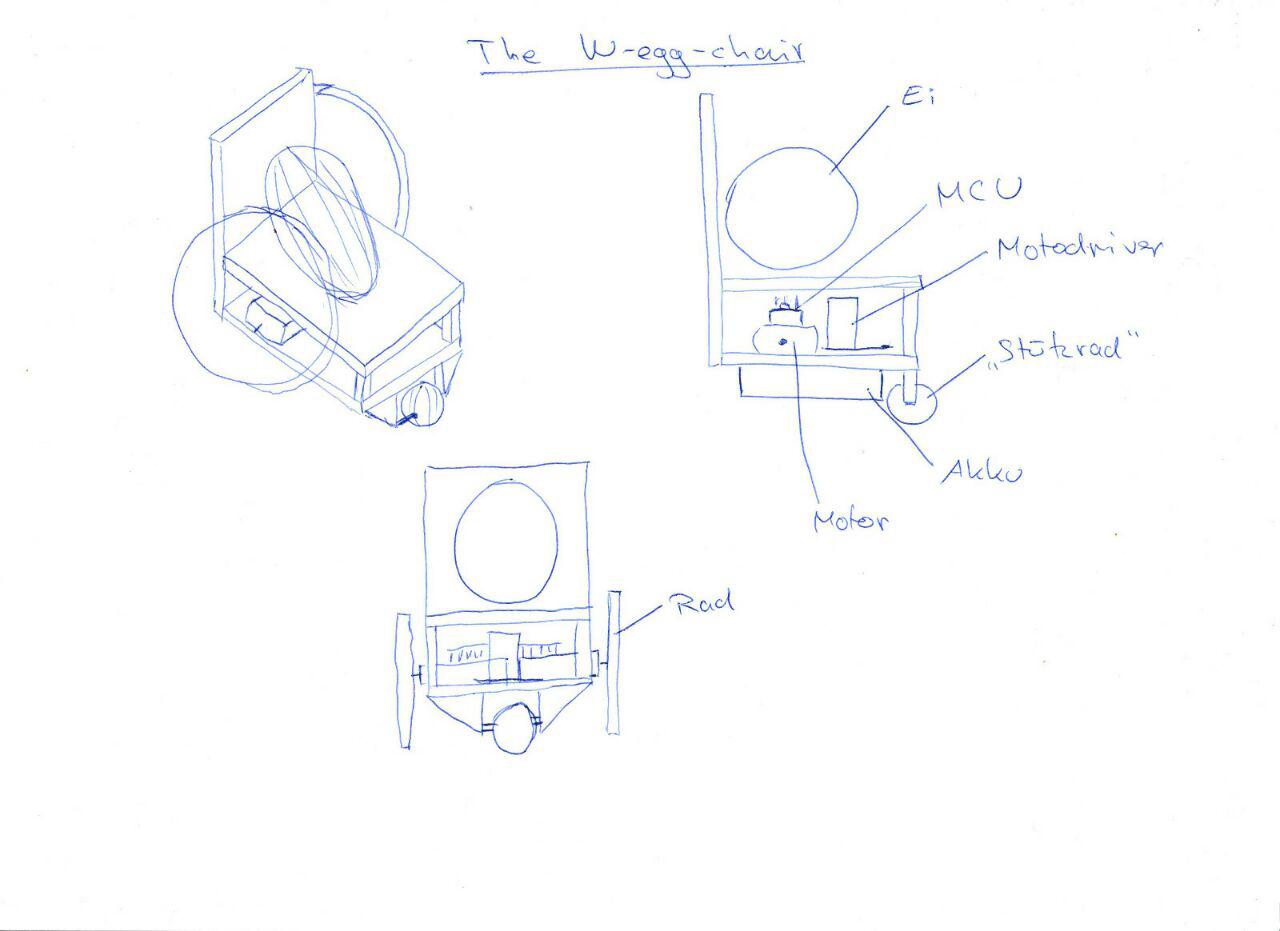 The W-egg-chair
Ei
MCU
Motodriver
„Stützrad“
Akku
Motor
Rad